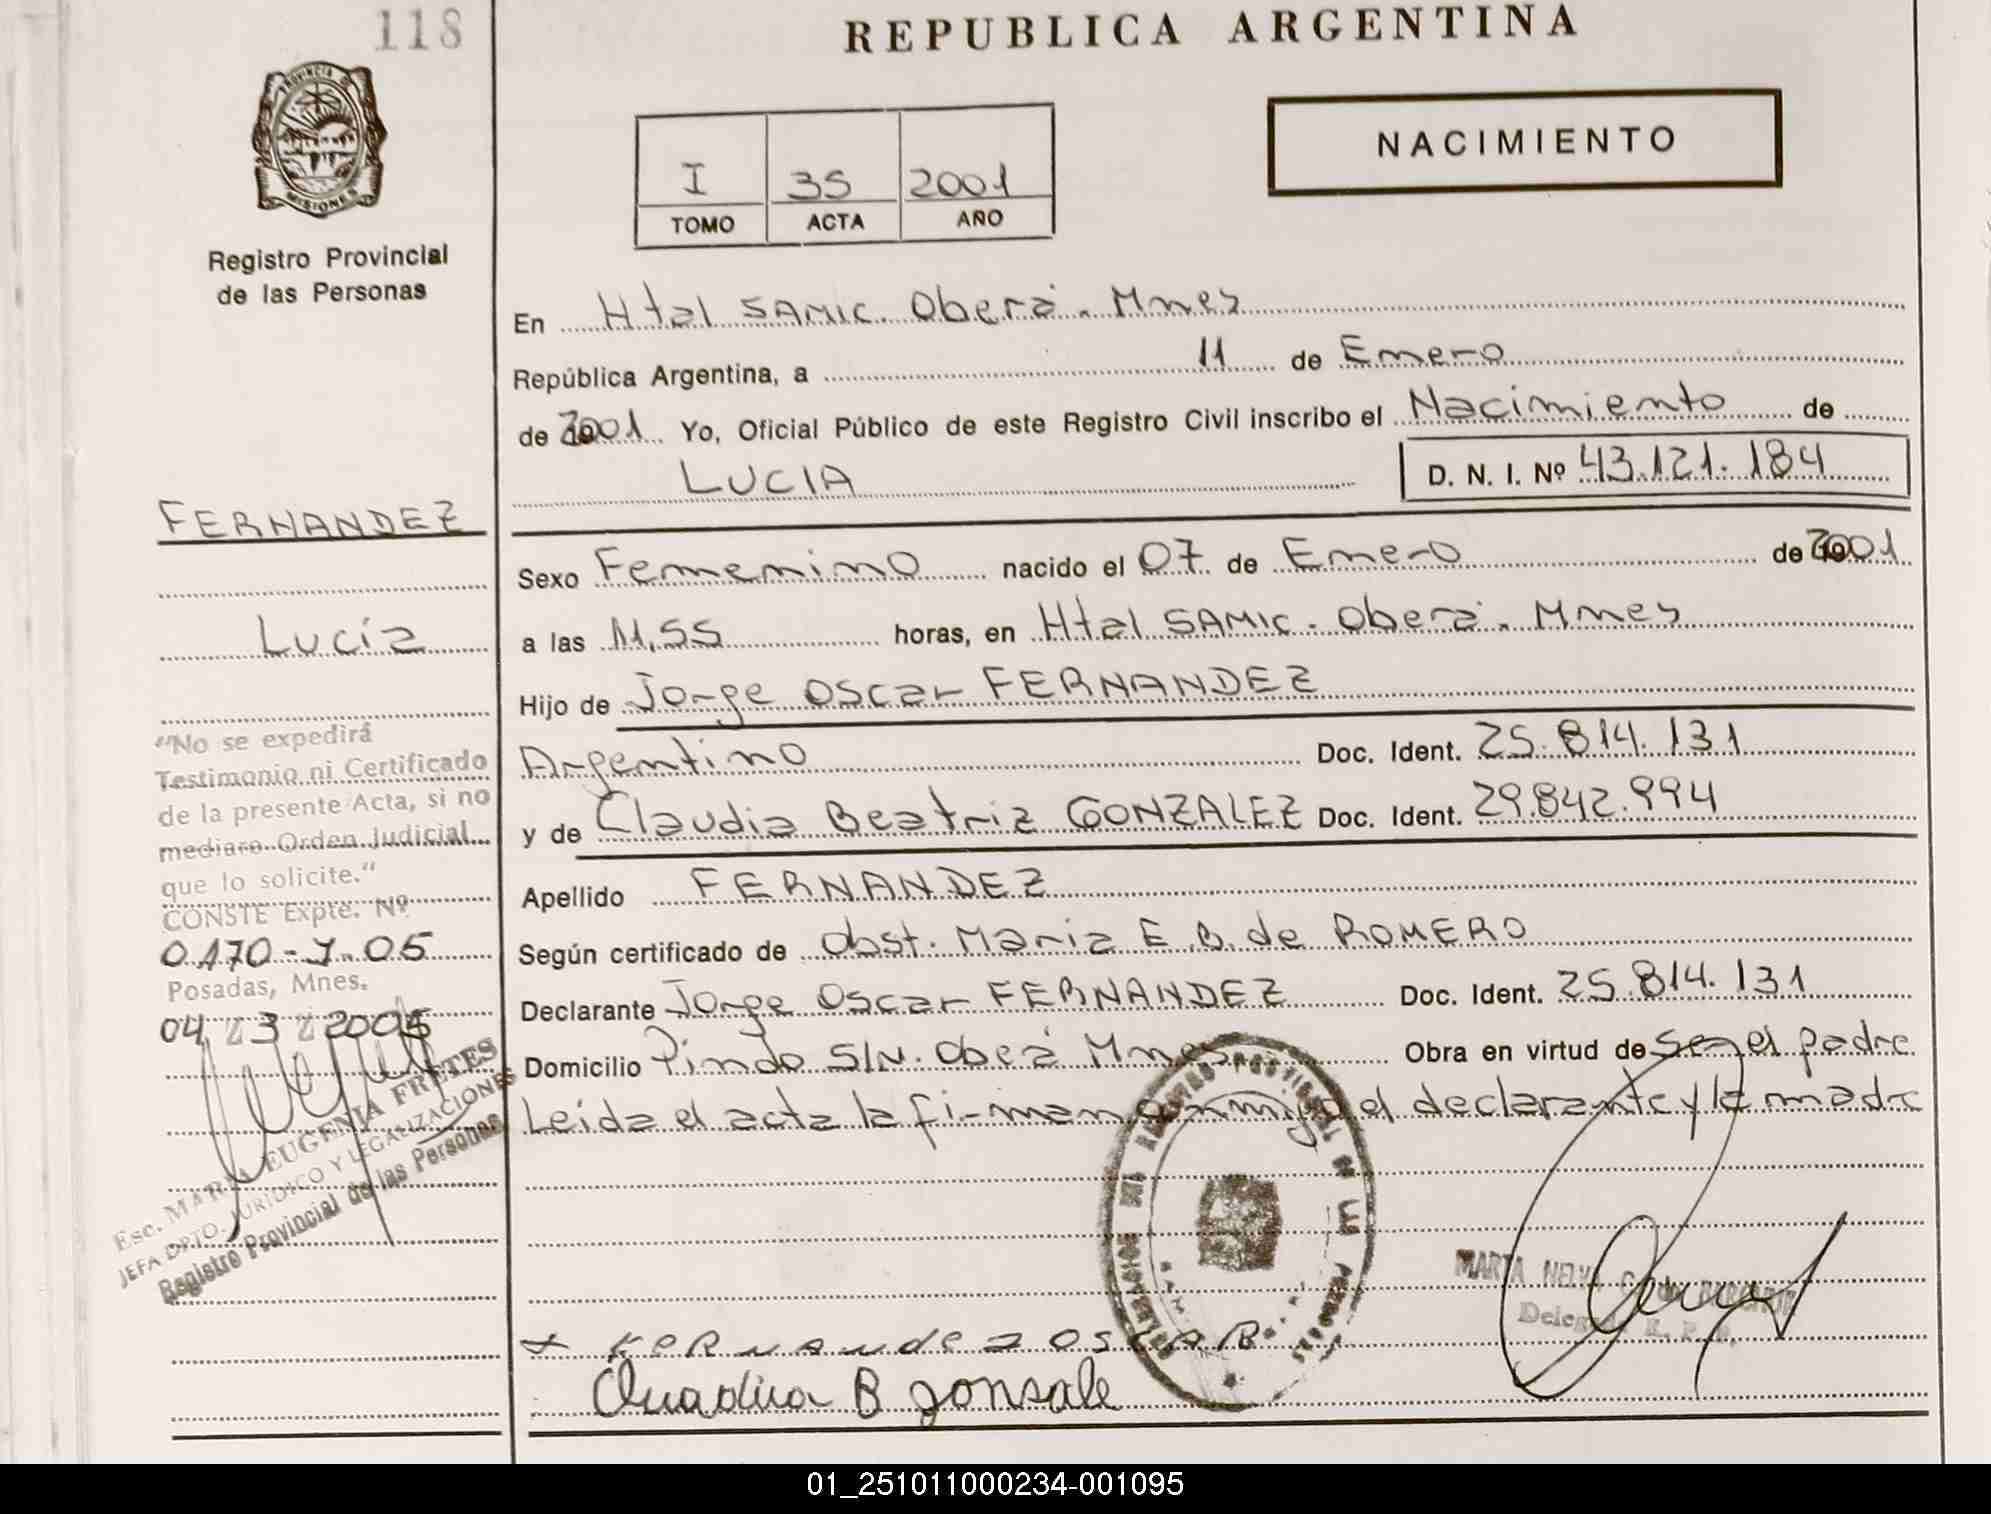 118
REPUBLICA ARGENTINA
PROVINCIA DE
MISIONES
Registro Provincial
de las Personas
I 35 2001
TOMO ACTA AÑO
NACIMIENTO
En Htal SAMIC. Oberá. Mnes
República Argentina, a 11 de Enero
de 2001 Yo, Oficial Público de este Registro Civil inscribo el Nacimiento de
LUCIA D. N. I. Nº 43.121.184
FERNANDEZ
Lucía
Sexo Femenino nacido el 07 de Enero de 2001
a las 11,55 horas, en Htal SAMIC. Oberá. Mnes
Hijo de Jorge Oscar FERNANDEZ
Argentino Doc. Ident. 25.814.131
y de Claudia Beatriz GONZALEZ Doc. Ident. 29.842.994
Apellido FERNANDEZ
Según certificado de Obst. Maria E. B. de ROMERO
Declarante Jorge Oscar FERNANDEZ Doc. Ident. 25.814.131
Domicilio Pindo S/N. Oberá Mnes Obra en virtud de ser el padre
Leida el acta la firman conmigo el declarante y la madre
"No se expedirá
Testimonio ni Certificado
de la presente Acta, si no
mediare Orden Judicial
que lo solicite."
CONSTE Expte. Nº
0170-J-05
Posadas, Mnes.
04 3 2005
Esc. MARIA EUGENIA FRETES
JEFA DPTO. JURIDICO Y LEGALIZACIONES
Registro Provincial de las Personas
MARTA NELVA
Delegada R. P. P.
FERNANDEZ OSCAR
Claudia B gonsale
01_251011000234-001095